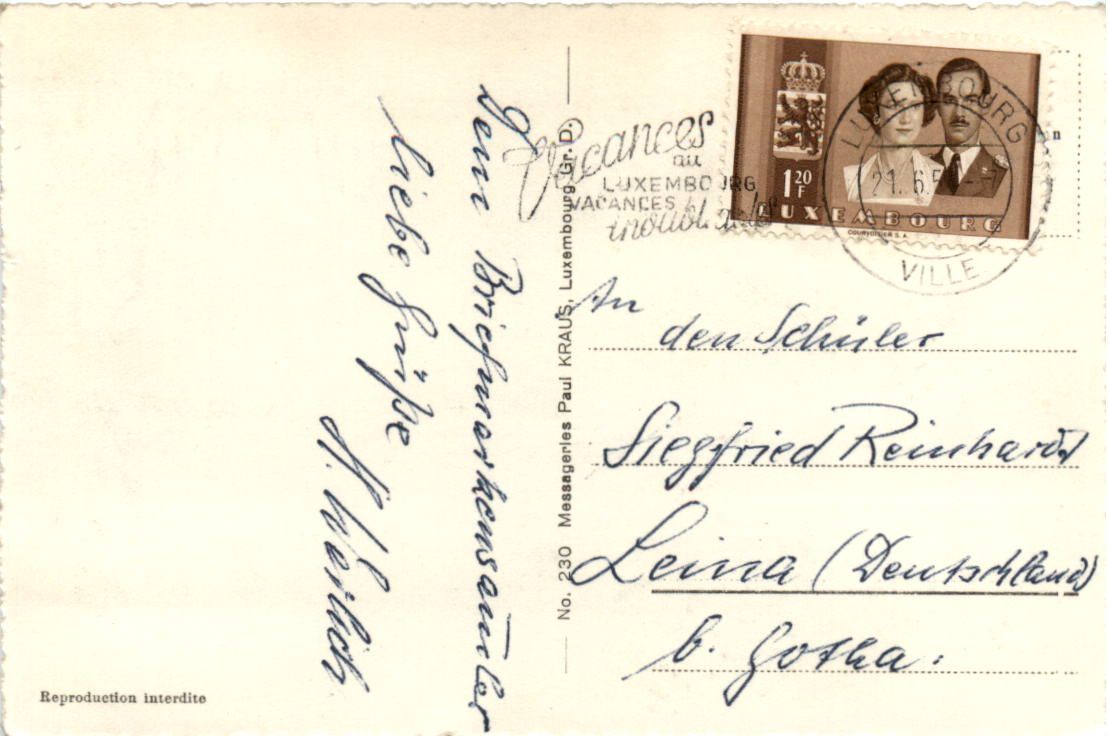 Dem Briefmarkensam̅ler
liebe Grüße
H. Werlich
Reproduction interdite
No. 230 Messageries Paul KRAUS, Luxembourg-Gr. D.
Vacances
au
LUXEMBOURG
VACANCES
1 20 F
LUXEMBOURG
COURVOISIER S.A.
LUXEMBOURG
21.6.5
VILLE
An
den Schüler
Siegfried Reinhardt
Leina (Deutschland)
b. Gotha.